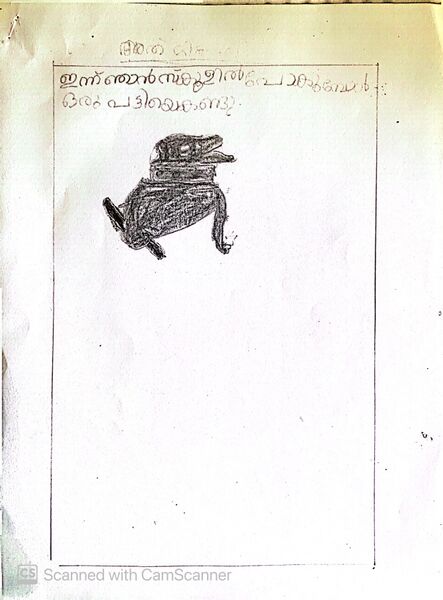 ഇന്ന് ഞാൻ സ്കൂളിൽ പോകുമ്പോൾ
ഒരു പട്ടിയെ കണ്ടു.
CS Scanned with CamScanner